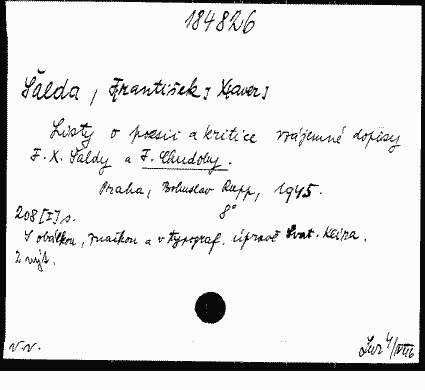 184826
Šalda, F[rantišek] X[aver]
Listy o poesii a kritice vzájemné dopisy
F. X. Šaldy a F. Chudoby.
Praha, Bohuslav Rupp, 1945.
8°
208 [I] s.
S obálkou, značkou a v typograf. úpravě Svat. Klíra.
2 výt.
v.v.